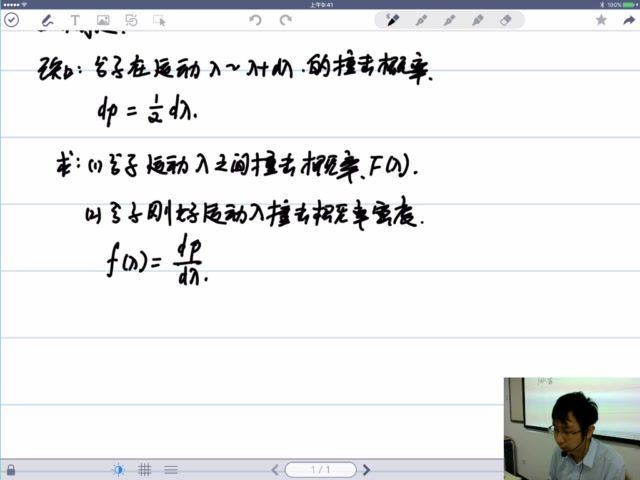 上午9:41
100%
已知：分子在运动 λ～λ+dλ 的撞击概率.
dp = 1/2 dλ.
求：(1) 分子运动 λ 之间撞击概率 F(λ).
(2) 分子刚好运动 λ 撞击概率密度.
f(λ) = dp/dλ.
1/1